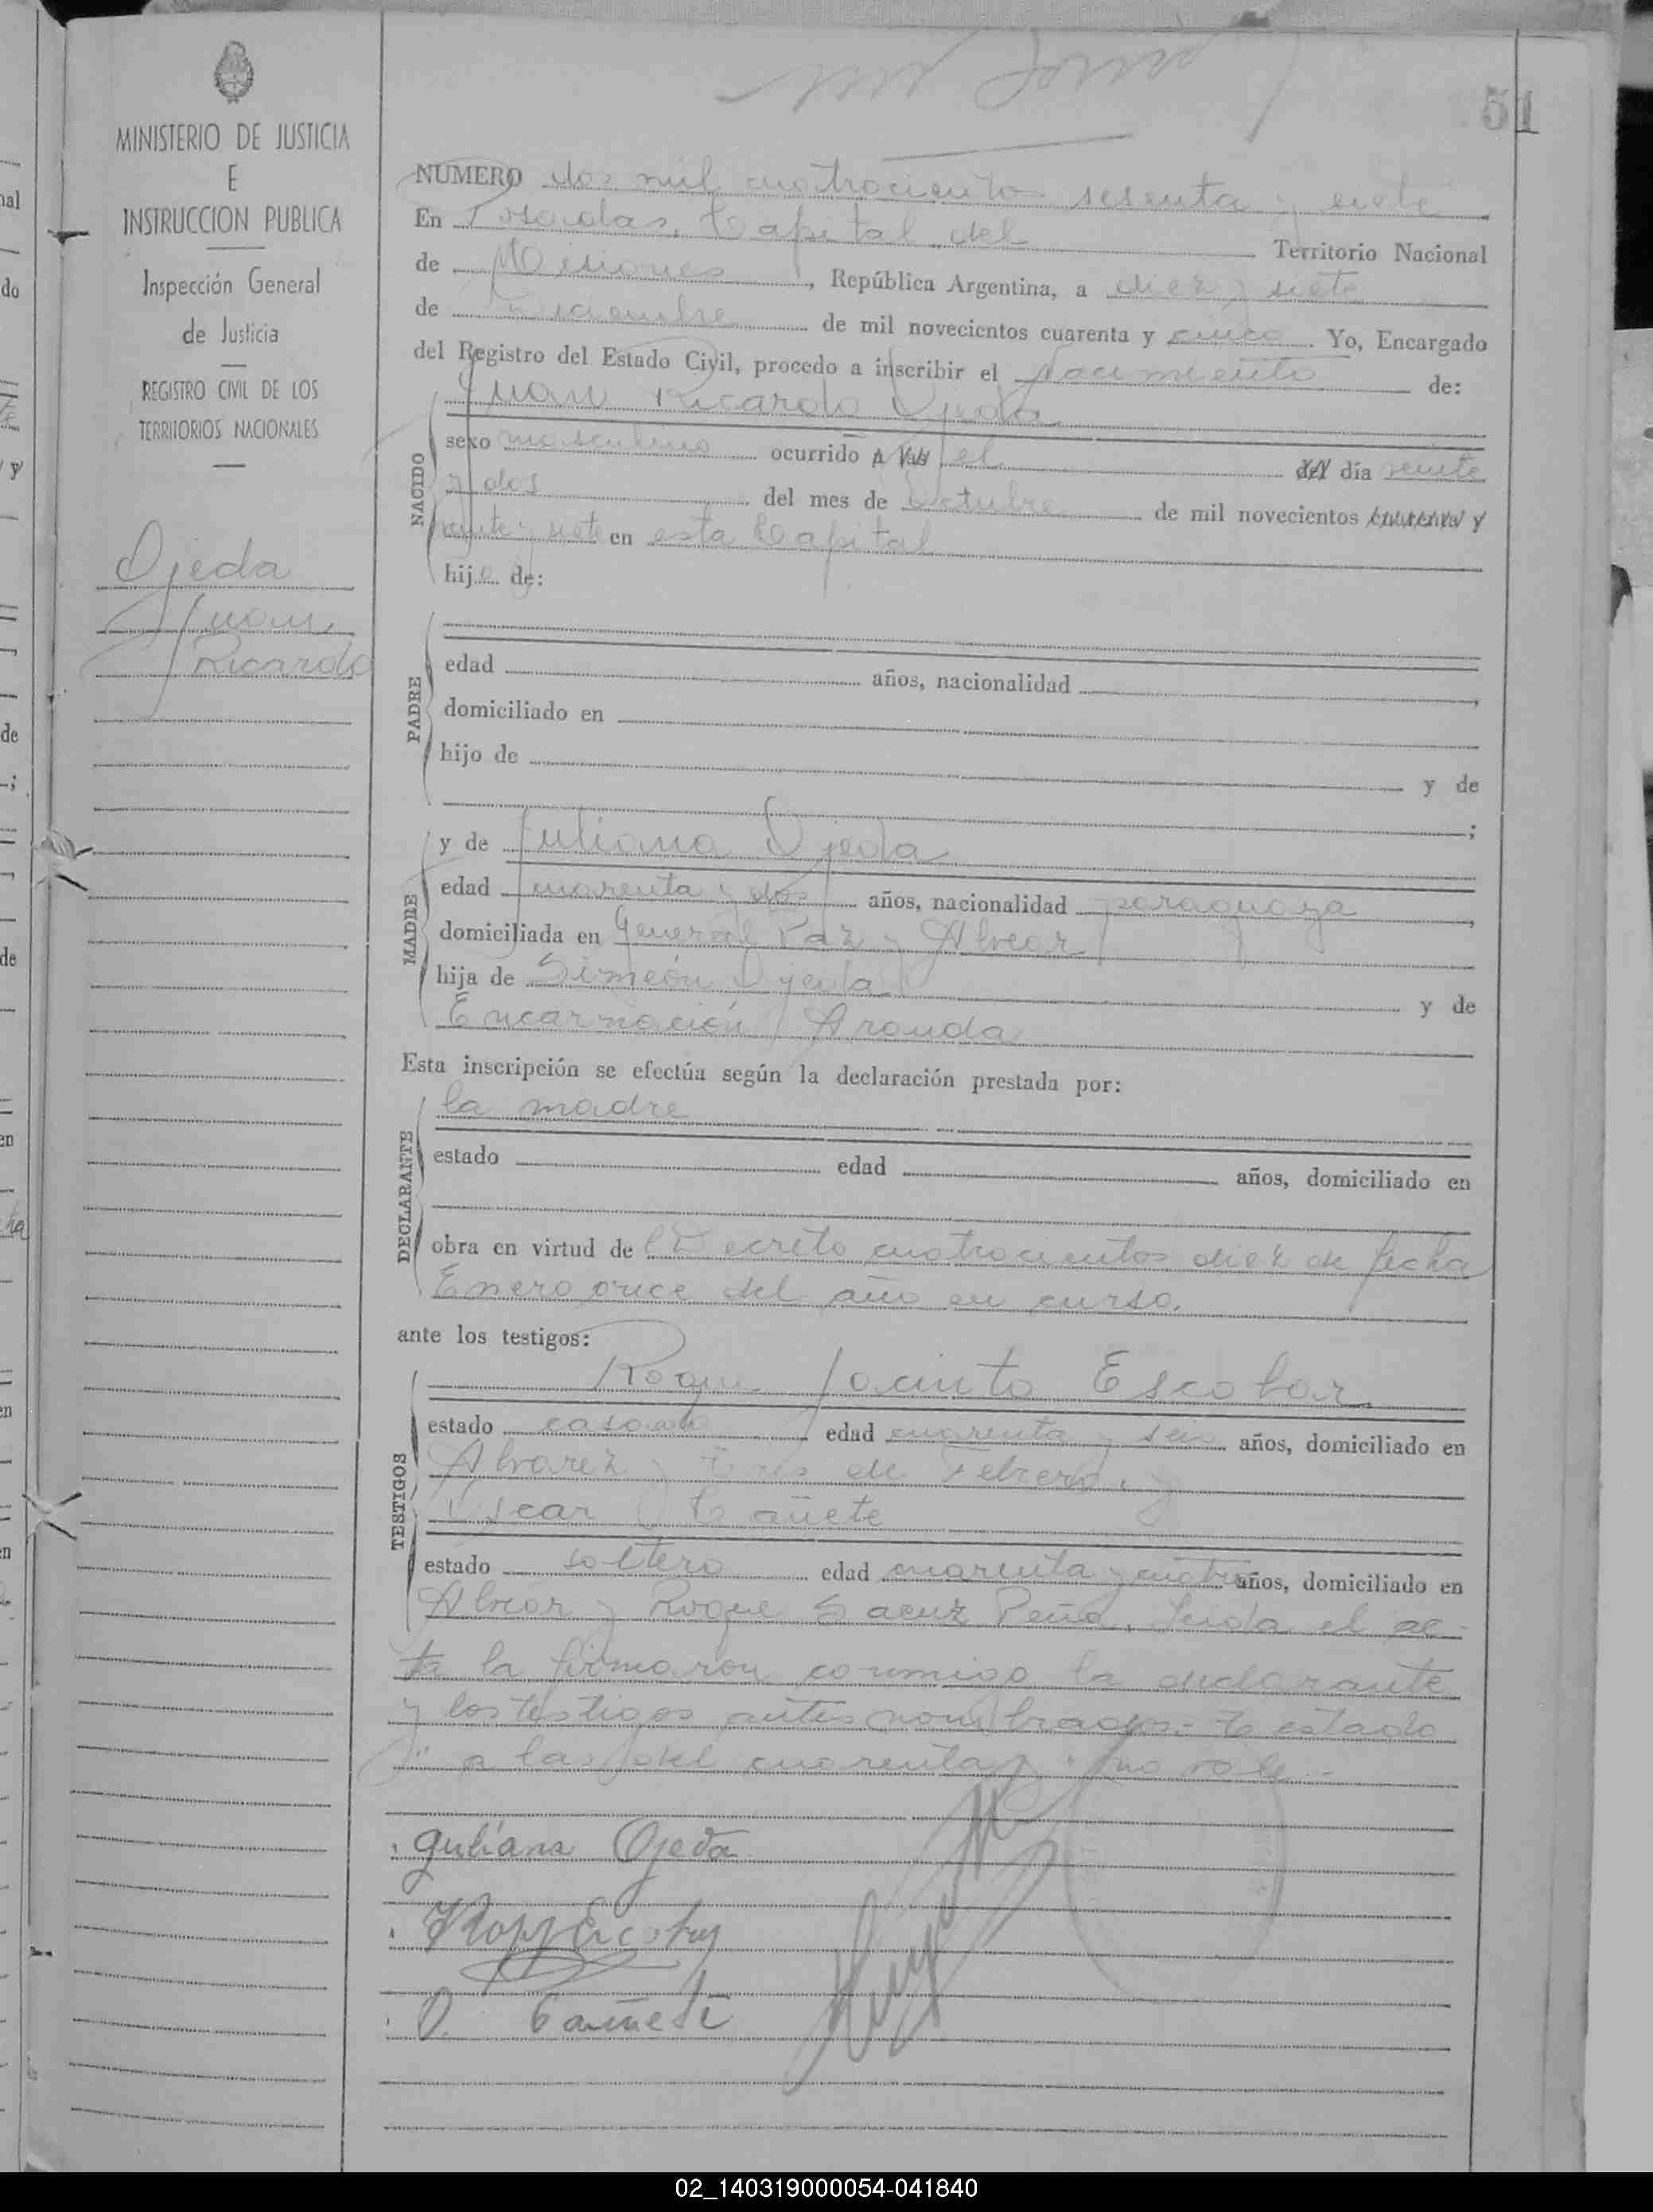 51
MINISTERIO DE JUSTICIA
E
INSTRUCCION PUBLICA
Inspección General
de Justicia
REGISTRO CIVIL DE LOS
TERRITORIOS NACIONALES
Ojeda
Juan
Ricardo
NUMERO dos mil cuatrocientos sesenta y siete
En Posadas, Capital del Territorio Nacional
de Misiones, República Argentina, a diez y siete
de Diciembre de mil novecientos cuarenta y cinco. Yo, Encargado
del Registro del Estado Civil, procedo a inscribir el Nacimiento de:
Juan Ricardo Ojeda
NACIDO
sexo masculino ocurrido a las el del día veinte
y dos del mes de Octubre de mil novecientos cuarenta y
veinte y siete en esta Capital
hijo de:
PADRE
edad años, nacionalidad
domiciliado en
hijo de y de
;
MADRE
y de Juliana Ojeda
edad cuarenta y dos años, nacionalidad paraguaya,
domiciliada en General Paz y Alvear
hija de Simeón Ojeda y de
Encarnación Aranda
Esta inscripción se efectúa según la declaración prestada por:
DECLARANTE
la madre
estado edad años, domiciliado en
obra en virtud de Decreto cuatrocientos diez de fecha
Enero once del año en curso.
ante los testigos:
TESTIGOS
Roque Jacinto Escobar
estado casado edad cuarenta y seis años, domiciliado en
Alvarez y Tres de Febrero, y
Oscar Cañete
estado soltero edad cuarenta y cuatro años, domiciliado en
Alvear y Roque Saenz Peña. Leida el ac-
ta la firmaron conmigo la declarante
y los testigos antes nombrados.- Testado
a las del cuarenta y : no vale.-
Juliana Ojeda
O. Cañete
02_140319000054-041840